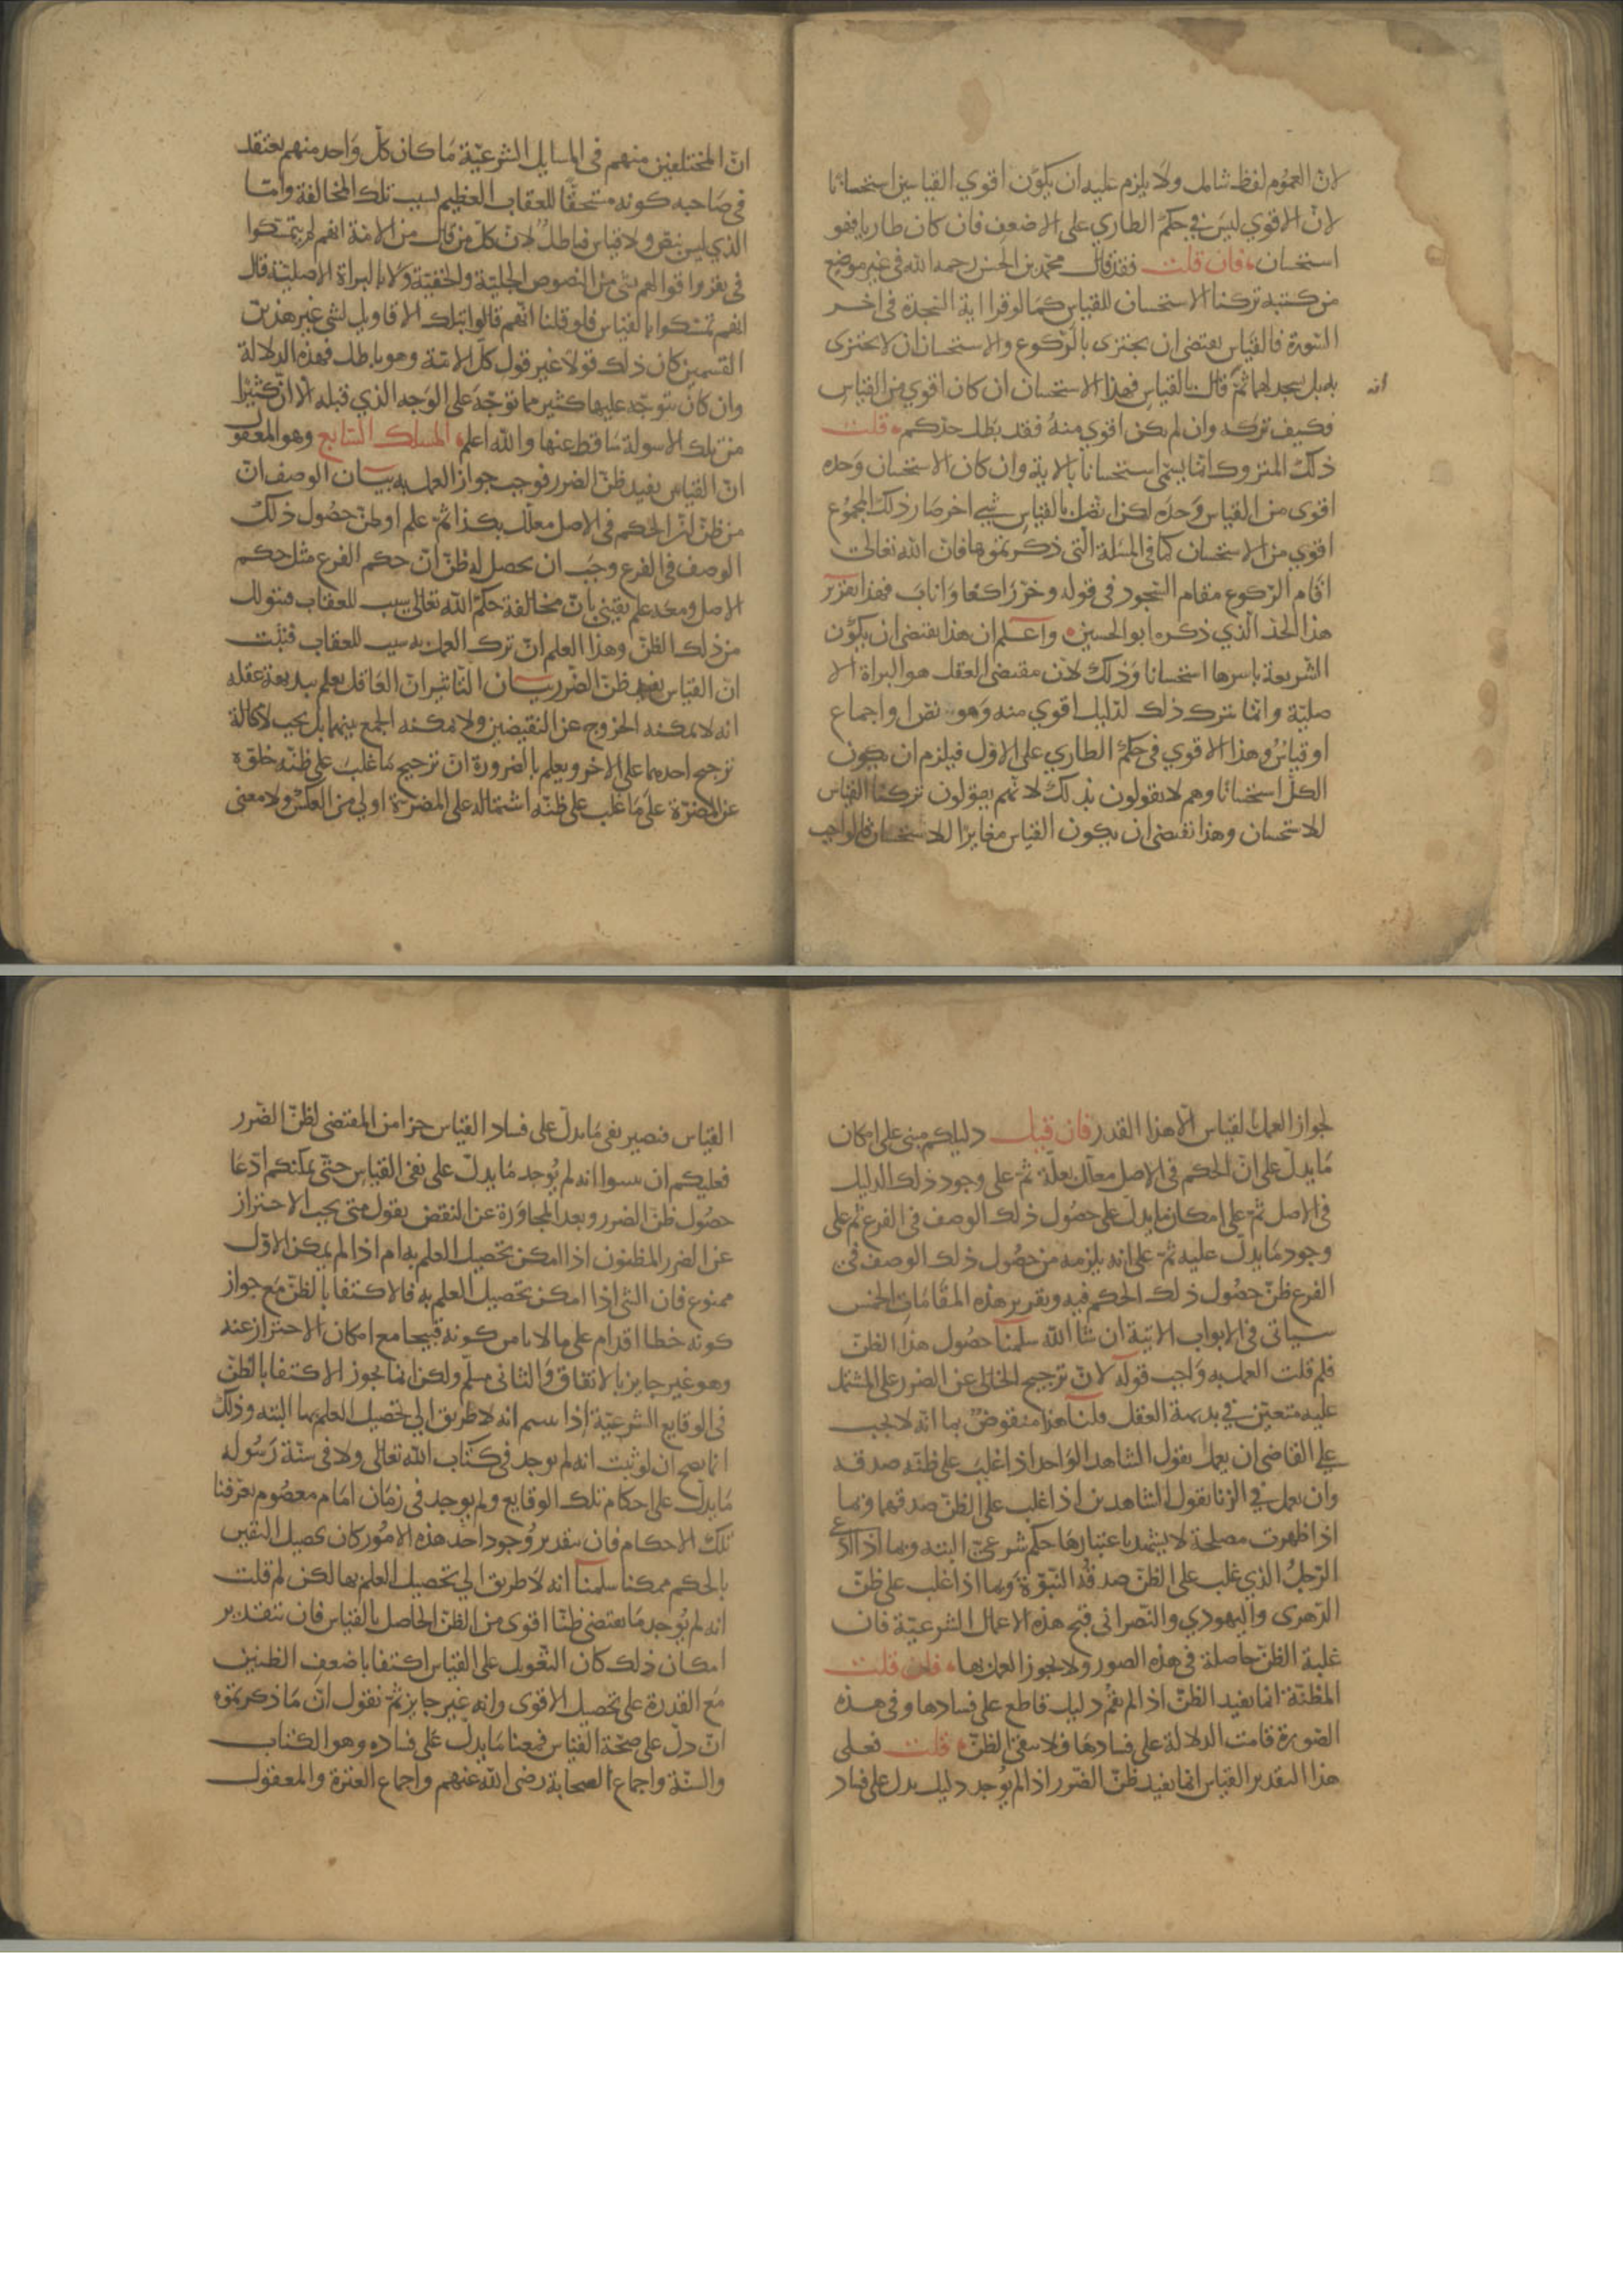 لان العموم لفظ شامل ولا يلزم عليه ان يكون اقوي القياسين استحسانا
لان الاقوي ليس في حكم الطاري على الاضعف فان كان طاريا فهو
استحسان فان قلت فقد قال محمد بن الحسن رحمه الله في غير موضع
من كتبه تركنا الاستحسان للقياس كما لو قرا اية السجدة في اخر
السورة فالقياس يقتضى ان يجتزى بالركوع والاستحسان ان لا يجتزى
به بل يسجد لها ثم قال بالقياس فهذا الاستحسان ان كان اقوي من القياس
انه
فكيف تركه وان لم يكن اقوي منه فقد بطل حدكم قلت
ذلك المتروك انما يسمى استحسانا بالاية وان كان الاستحسان وحده
اقوى من القياس وحده لكن اتصل بالقياس شي اخر صار ذلك المجموع
اقوي من الاستحسان كما في المسلة التي ذكرتموها فان الله تعالى
اقام الركوع مقام السجود في قوله وخر راكعا واناب فهذا تقرير
هذا الحد الذي ذكره ابو الحسين واعلم ان هذا يقتضى ان يكون
الشريعة باسرها استحسانا وذلك لان مقتضى العقل هو البراة الا
صلية وانما نترك ذلك لدليل اقوي منه وهو نص او اجماع
او قياس وهذا الاقوي في حكم الطاري على الاول فيلزم ان يكون
الكل استحسانا وهم لا يقولون بذلك لانهم يقولون تركنا القياس
للاستحسان وهذا يقتضى ان يكون القياس مغايرا للاستحسان فالواجب
ان المختلفين منهم في المسايل الشرعية ما كان كل واحد منهم يعتقد
في صاحبه كونه مستحقا للعقاب العظيم بسبب تلك المخالفة واما
الذي ليس بنص ولا قياس فباطل لان كل من قال من الامة انهم لم يتمسكوا
في نفروا قوالهم بشى من النصوص الجلية والخفية ولا بالبراة الاصلية قال
انهم تمسكوا بالقياس فلو قلنا انهم قالوا بتلك الاقاويل لشى غير هذين
القسمين كان ذلك قولا غير قول كل الامة وهو باطل فهذه الدلالة
وان كان يتوجه عليها كثير مما توجه على الوجه الذي قبله الا ان كثيرا
من تلك الاسولة ساقط عنها والله اعلم المسلك السابع وهو المعقول
ان القياس يفيد ظن الضرر فوجب جواز العمل به بيان الوصف ان
من ظن ان الحكم في الاصل معلل بكذا ثم علم او ظن حصول ذلك
الوصف في الفرع وجب ان يحصل له ظن ان حكم الفرع مثل حكم
الاصل ومعه علم يقينى بان مخالفة حكم الله تعالى سبب للعقاب فيتولد
من ذلك الظن وهذا العلم ان ترك العمل به سبب للعقاب فثبت
ان القياس يفيد ظن الضرر بيان التاثير ان العاقل يعلم ببديهة عقله
انه لا يمكنه الخروج عن النقيضين ولا يمكنه الجمع بينهما بل يجب لا محالة
ترجيح احدهما على الاخر ويعلم بالضرورة ان ترجيح ما غلب على ظنه خلوه
عن المضرة على ما غلب على ظنه اشتماله على المضرة اولى من العكس ولا معنى
لجواز العمل بالقياس الا هذا القدر فان قيل دليلكم مبنى على امكان
ما يدل على ان الحكم في الاصل معلل بعلة ثم على وجود ذلك الدليل
في الاصل ثم على امكان ما يدل على حصول ذلك الوصف في الفرع ثم على
وجود ما يدل عليه ثم على انه يلزمه من حصول ذلك الوصف في
الفرع ظن حصول ذلك الحكم فيه وتقرير هذه المقامات الخمس
سياتى في الابواب الاتية ان شا الله سلمنا حصول هذا الظن
فلم قلت العمل به واجب قوله لان ترجيح الخالى عن الضرر على المشتمل
عليه متعين في بديهة العقل قلنا هذا منقوض بما انه لا يجب
على القاضى ان يعمل بقول الشاهد الواحد اذا غلب على ظنه صدقه
وان يعمل في الزنا بقول الشاهدين اذا غلب على الظن صدقهما وبما
اذا ظهرت مصلحة لا يشهد باعتبارها حكم شرعي البته وبما اذا ادعى
الرجل الذي غلب على الظن صدقه النبوة وبما اذا غلب على ظن
الدهرى واليهودي والنصرانى قبح هذه الاعمال الشرعية فان
غلبة الظن حاصلة في هذه الصور ولا يجوز العمل بها فان قلت
المظنة انما يفيد الظن اذا لم يقم دليل قاطع على فسادها وفي هذه
الصورة قامت الدلالة على فسادها فلا يبقى الظن قلت فعلى
هذا التقدير القياس انما يفيد ظن الضرر اذا لم يوجد دليل يدل على فساد
القياس فيصير نفي ما يدل على فساد القياس جزا من المقتضى لظن الضرر
فعليكم ان تبينوا انه لم يوجد ما يدل على نفى القياس حتى يمكنكم ادعا
حصول ظن الضرر وبعد المجاوزة عن النقض يقول متى يجب الاحتراز
عن الضرر المظنون اذا امكن تحصيل العلم به ام اذا لم يمكن الاول
ممنوع فان الشى اذا امكن تحصيل العلم به فالاكتفا بالظن مع جواز
كونه خطا اقدام على ما لا يامن كونه قبيحا مع امكان الاحتراز عنه
وهو غير جايز بالاتفاق والثانى مسلم ولكن انما يجوز الاكتفا بالظن
في الوقايع الشرعية اذا بينتم انه لا طريق الى تحصيل العلم بها البته وذلك
انما يصح ان لو ثبت انه لم يوجد في كتاب الله تعالى ولا في سنة رسوله
ما يدل على احكام تلك الوقايع ولم يوجد في زمان امام معصوم يعرفنا
تلك الاحكام فان بتقدير وجود احد هذه الامور كان تحصيل اليقين
بالحكم ممكنا سلمنا انه لا طريق الى تحصيل العلم بها لكن لم قلت
انه لم يوجد ما يقتضى ظنا اقوى من الظن الحاصل بالقياس فان بتقدير
امكان ذلك كان التعويل على القياس اكتفا باضعف الظنين
مع القدرة على تحصيل الاقوى وانه غير جايز ثم نقول ان ما ذكرتموه
ان دل على صحة القياس فمعنا ما يدل على فساده وهو الكتاب
والسنة واجماع الصحابة رضى الله عنهم واجماع العترة والمعقول